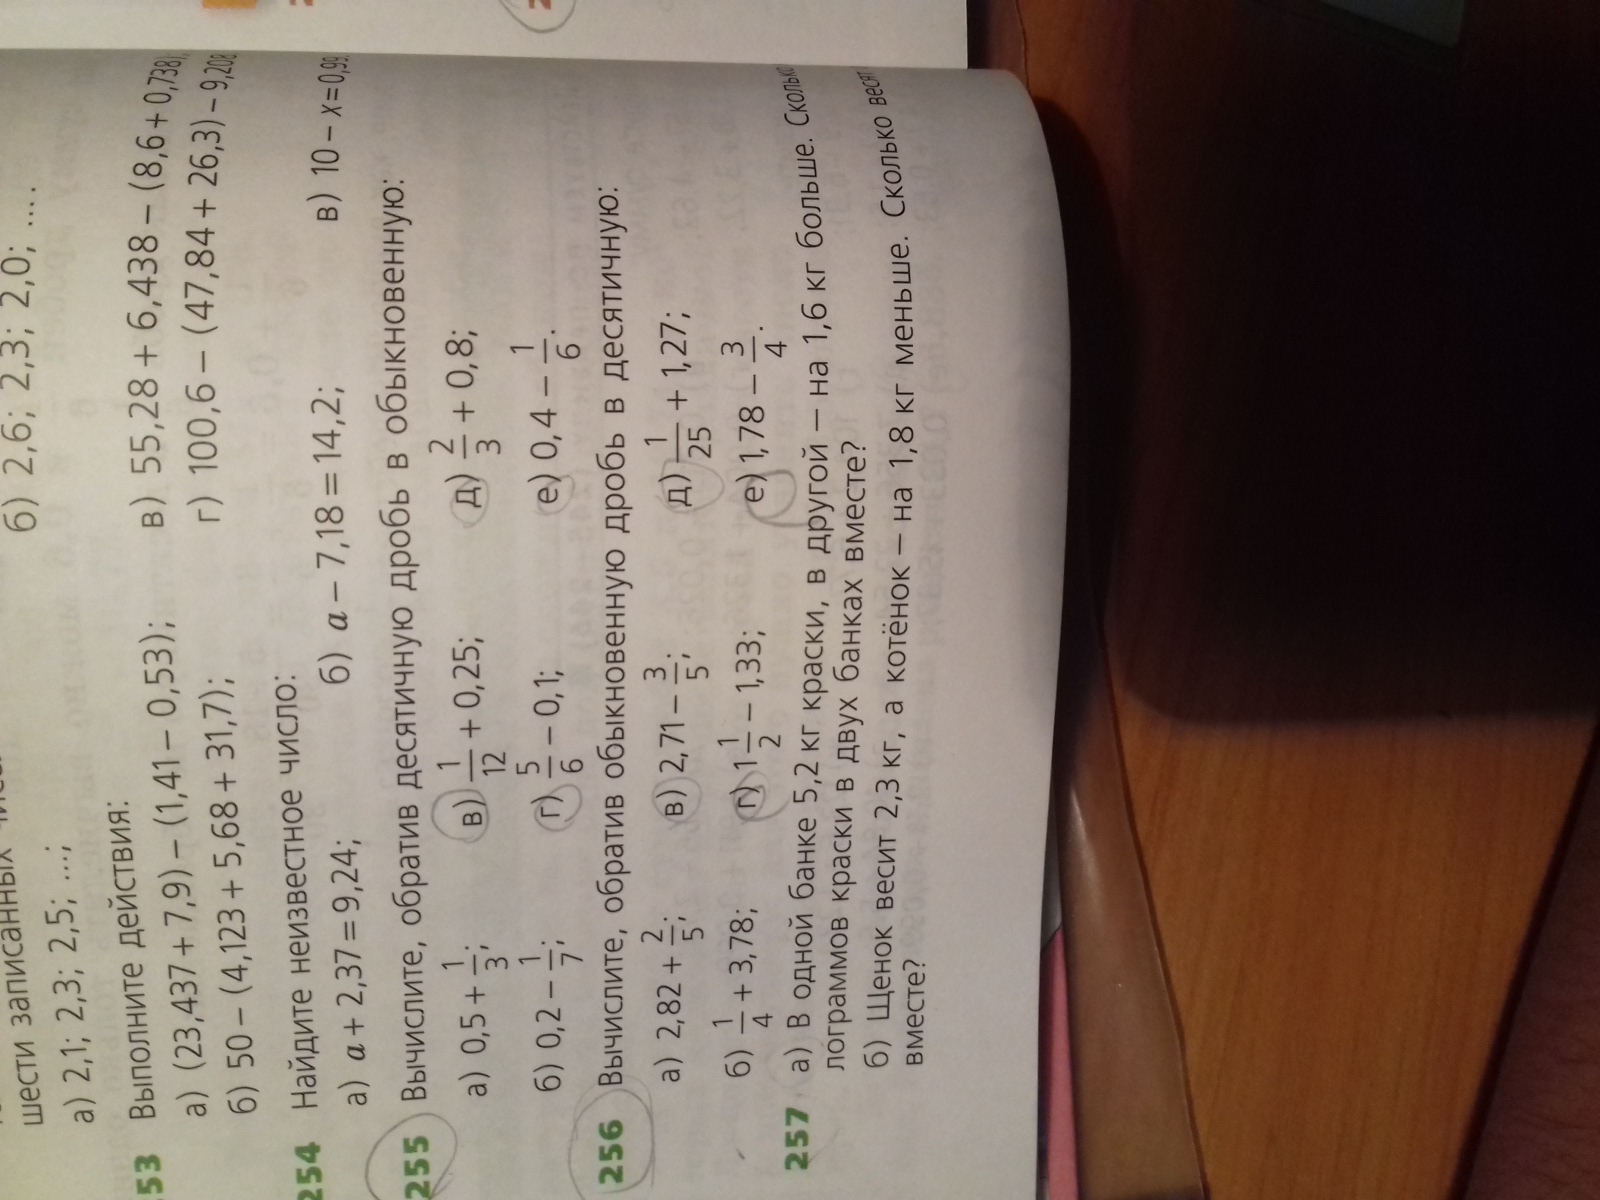 шести записанных
а) 2,1; 2,3; 2,5; ...; б) 2,6; 2,3; 2,0; ....
53 Выполните действия:
а) (23,437 + 7,9) − (1,41 − 0,53); в) 55,28 + 6,438 − (8,6 + 0,738);
б) 50 − (4,123 + 5,68 + 31,7); г) 100,6 − (47,84 + 26,3) − 9,208
254 Найдите неизвестное число:
а) a + 2,37 = 9,24; б) a − 7,18 = 14,2; в) 10 − x = 0,99
255 Вычислите, обратив десятичную дробь в обыкновенную:
а) 0,5 + 1/3; в) 1/12 + 0,25; д) 2/3 + 0,8;
б) 0,2 − 1/7; г) 5/6 − 0,1; е) 0,4 − 1/6.
256 Вычислите, обратив обыкновенную дробь в десятичную:
а) 2,82 + 2/5; в) 2,71 − 3/5; д) 1/25 + 1,27;
б) 1/4 + 3,78; г) 1 1/2 − 1,33; е) 1,78 − 3/4.
257 а) В одной банке 5,2 кг краски, в другой — на 1,6 кг больше. Сколько
лограммов краски в двух банках вместе?
б) Щенок весит 2,3 кг, а котёнок — на 1,8 кг меньше. Сколько весят
вместе?